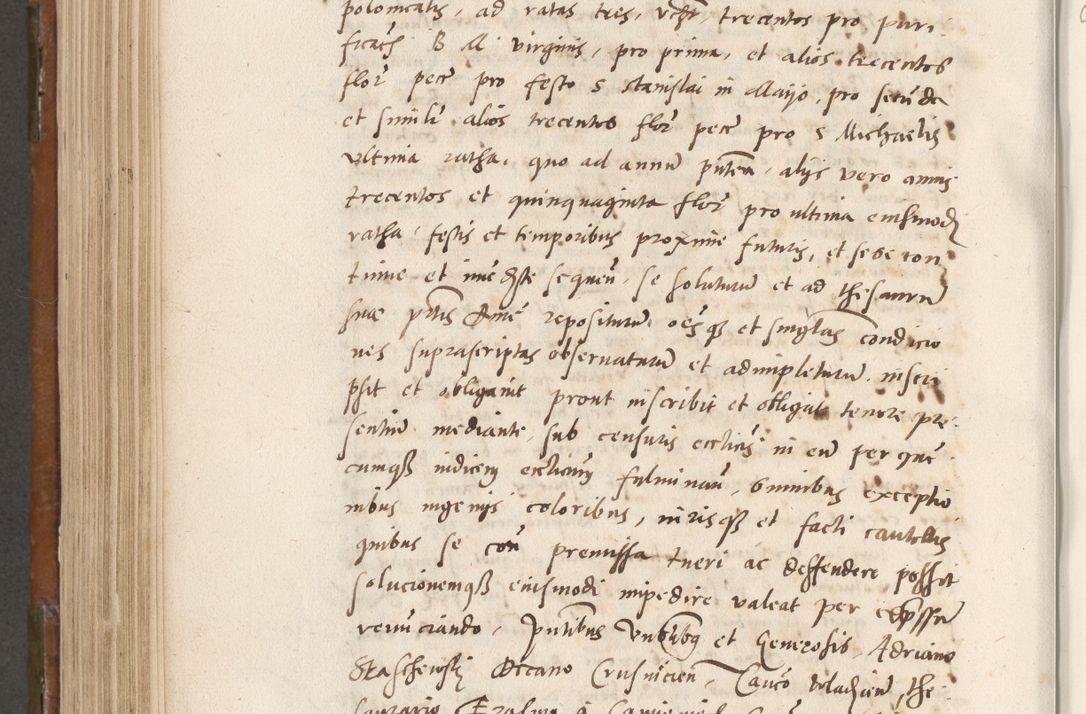 polonicalis, ad ratas tres, vz̃, trecentos pro puri
ficac̃ B M virginis, pro prima, et alios trecentos
flor̃ pecc̃ pro festo S Stanislai in Maijo, pro secũda
et simili alios trecentos flor̃ pecc̃ pro S Michaelis
ultima ratha, quo ad annũ pñtem, alijs vero annis
trecentos et quinquaginta flor̃ pro ultima eiusmodj
ratha, festis et temporibus proxime futuris, et sese con
tinue et sequeñ, se soluturũ et ad thesaurũ
suæ repositurũ, oẽsqꝫ et singlas condicio
nes suprascriptas obseruaturũ et adimpleturũ inscri
psit et obligauit prout inscribit et obligat tenore pre
sentiũ mediante, sub censuris ecclicis in eũ per quẽ
cumqꝫ iudicem ecclicum fulminañ, omnibus exceptio
nibus ingenijs coloribus, iurisqꝫ et facti cautelis
quibus se coñ premissa tueri ac deffendere possit
solucionemqꝫ eiusmodi impedire valeat per expssũ
renunciando, Pñtibus et Generosis Adriano
Crusuicien̄, the